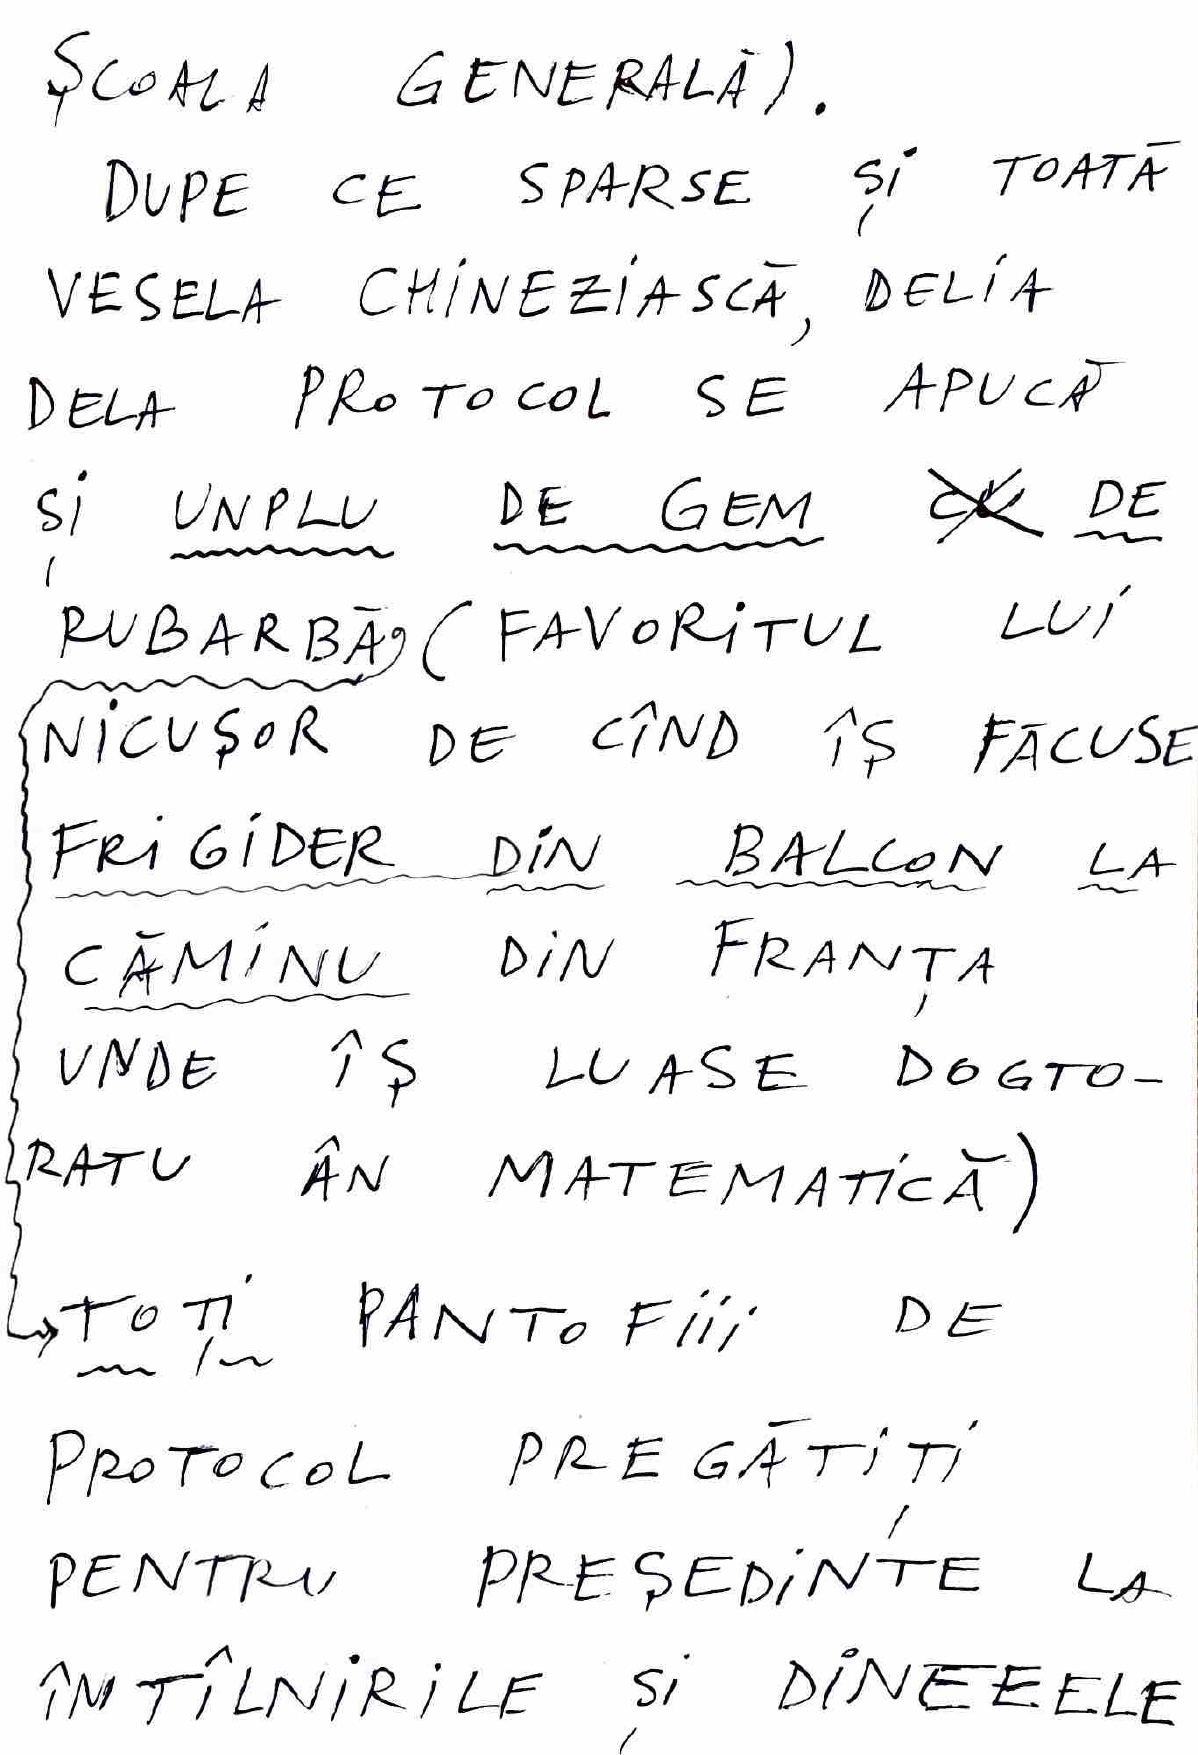 ȘCOALA GENERALĂ).
DUPE CE SPARSE ȘI TOATĂ
VESELA CHINEZIASCĂ, DELIA
DELA PROTOCOL SE APUCĂ
ȘI UNPLU DE GEM DE
RUBARBĂ, (FAVORITUL LUI
NICUȘOR DE CÎND ÎȘ FĂCUSE
FRIGIDER DIN BALCON LA
CĂMINU DIN FRANȚA
UNDE ÎȘ LUASE DOGTO-
RATU ÂN MATEMATICĂ)
TOȚI PANTOFIII DE
PROTOCOL PREGĂTIȚI
PENTRU PREȘEDINTE LA
ÎNTÎLNIRILE ȘI DINEEELE